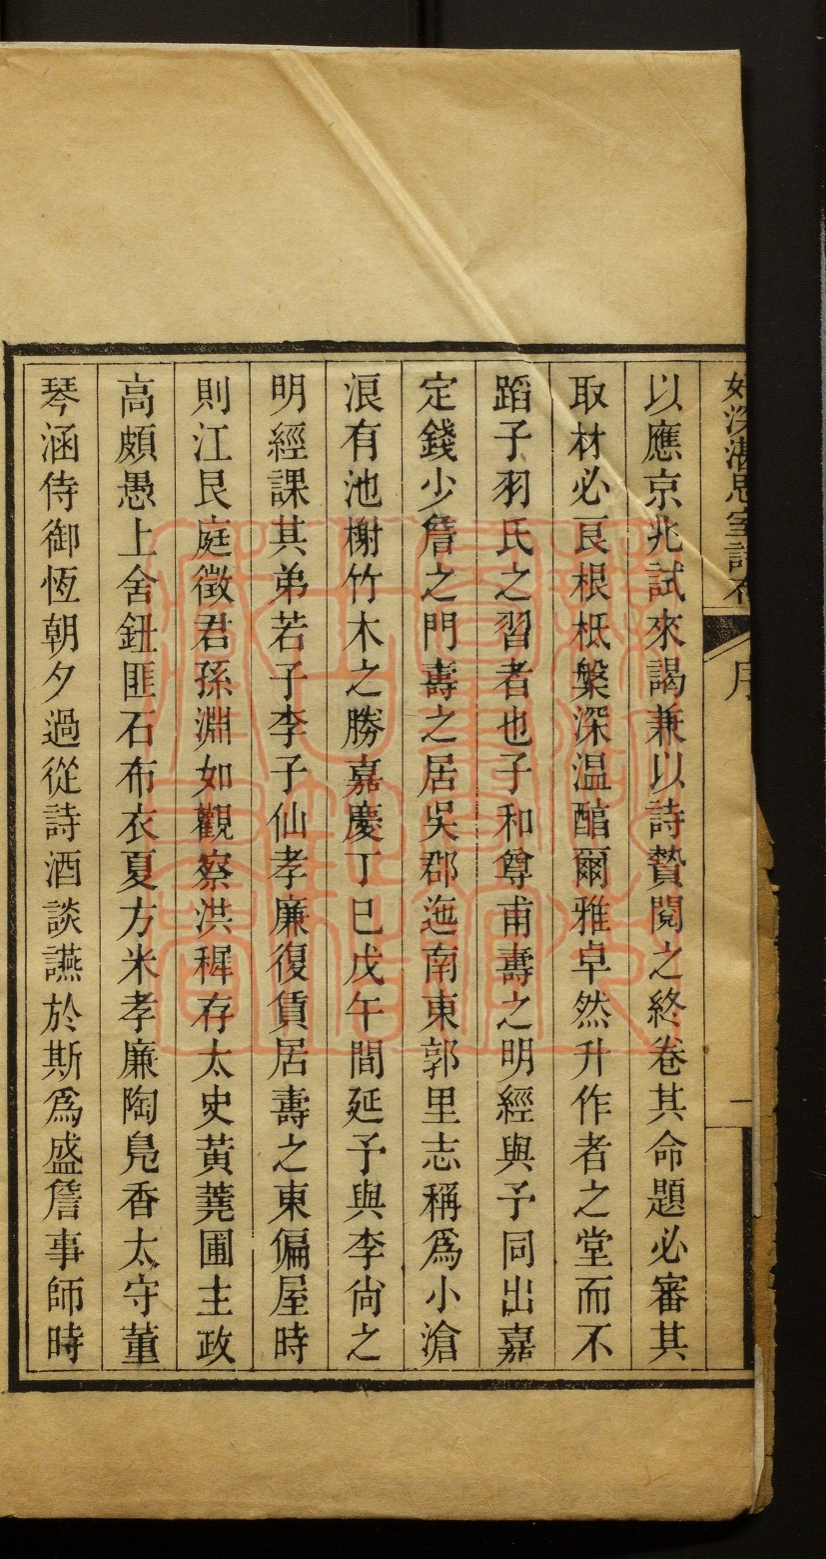 好深湛思室詩存
序
一
以應京兆試來謁兼以詩贄閱之終卷其命題必審其
取材必艮根柢槃深温醅爾雅卓然升作者之堂而不
蹈子羽氏之習者也子和尊甫壽之明經與予同出嘉
定錢少詹之門壽之居吳郡迤南東郭里志稱爲小滄
浪有池榭竹木之勝嘉慶丁巳戊午間延予與李尙之
明經課其弟若子李子仙孝廉復賃居壽之東偏屋時
則江艮庭徵君孫淵如觀察洪稺存太史黃蕘圃主政
高頗愚上舍鈕匪石布衣夏方米孝廉陶鳧香太守董
琴涵侍御恆朝夕過從詩酒談讌於斯爲盛詹事師時